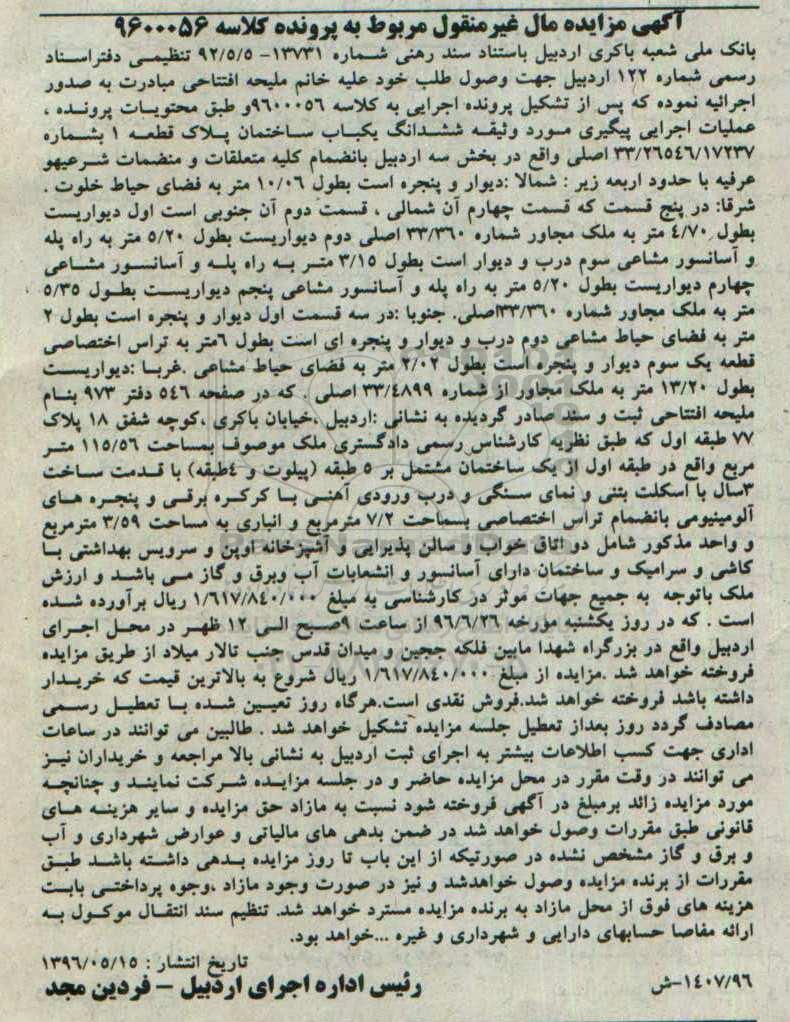 آگهی مزایده مال غیرمنقول مربوط به پرونده کلاسه ۹۶۰۰۰۵۶
بانک ملی شعبه باکری اردبیل باستناد سند رهنی شماره ۱۳۷۳۱- ۹۲/۵/۵ تنظیمی دفتراسناد
رسمی شماره ۱۲۲ اردبیل جهت وصول طلب خود علیه خانم ملیحه افتتاحی مبادرت به صدور
اجرائیه نموده که پس از تشکیل پرونده اجرایی به کلاسه ۹۶۰۰۰۵۶و طبق محتویات پرونده ،
عملیات اجرایی پیگیری مورد وثیقه ششدانگ یکباب ساختمان پلاک قطعه ۱ بشماره
۳۳/۲۶۵۴۶/۱۷۲۳۷ اصلی واقع در بخش سه اردبیل بانضمام کلیه متعلقات و منضمات شرعیهو
عرفیه با حدود اربعه زیر : شمالا :دیوار و پنجره است بطول ۱۰/۰۶ متر به فضای حیاط خلوت .
شرقا: در پنج قسمت که قسمت چهارم آن شمالی ، قسمت دوم آن جنوبی است اول دیواریست
بطول ۴/۷۰ متر به ملک مجاور شماره ۳۳/۳۶۰ اصلی دوم دیواریست بطول ۵/۲۰ متر به راه پله
و آسانسور مشاعی سوم درب و دیوار است بطول ۳/۱۵ متر به راه پله و آسانسور مشاعی
چهارم دیواریست بطول ۵/۲۰ متر به راه پله و آسانسور مشاعی پنجم دیواریست بطول ۵/۳۵
متر به ملک مجاور شماره ۳۳/۳۶۰اصلی. جنوبا :در سه قسمت اول دیوار و پنجره است بطول ۲
متر به فضای حیاط مشاعی دوم درب و دیوار و پنجره ای است بطول ۶متر به تراس اختصاصی
قطعه یک سوم دیوار و پنجره است بطول ۲/۰۲ متر به فضای حیاط مشاعی .غربا :دیواریست
بطول ۱۳/۲۰ متر به ملک مجاور از شماره ۳۳/۴۸۹۹ اصلی . که در صفحه ۵۴۶ دفتر ۹۷۳ بنام
ملیحه افتتاحی ثبت و سند صادر گردیده به نشانی :اردبیل ،خیابان باکری ،کوچه شفق ۱۸ پلاک
۷۷ طبقه اول که طبق نظریه کارشناس رسمی دادگستری ملک موصوف بمساحت ۱۱۵/۵۶ متر
مربع واقع در طبقه اول از یک ساختمان مشتمل بر ۵ طبقه (پیلوت و ٤طبقه) با قدمت ساخت
۳سال با اسکلت بتنی و نمای سنگی و درب ورودی آهنی با کرکره برقی و پنجره های
آلومینیومی بانضمام تراس اختصاصی بسماحت ۷/۲ مترمربع و انباری به مساحت ۳/۵۹ مترمربع
و واحد مذکور شامل دو اتاق خواب و سالن پذیرایی و آشپزخانه اوپن و سرویس بهداشتی با
کاشی و سرامیک و ساختمان دارای آسانسور و انشعابات آب وبرق و گاز می باشد و ارزش
ملک باتوجه به جمیع جهات موثر در کارشناسی به مبلغ ۱/۶۱۷/۸۴۰/۰۰۰ ریال برآورده شده
است . که در روز یکشنبه مورخه ۹۶/۶/۲۶ از ساعت ۹صبح الی ۱۲ ظهر در محل اجرای
اردبیل واقع در بزرگراه شهدا مابین فلکه ججین و میدان قدس جنب تالار میلاد از طریق مزایده
فروخته خواهد شد .مزایده از مبلغ ۱/۶۱۷/۸۴۰/۰۰۰ ریال شروع به بالاترین قیمت که خریدار
داشته باشد فروخته خواهد شد.فروش نقدی است.هرگاه روز تعیین شده با تعطیل رسمی
مصادف گردد روز بعداز تعطیل جلسه مزایده تشکیل خواهد شد . طالبین می توانند در ساعات
اداری جهت کسب اطلاعات بیشتر به اجرای ثبت اردبیل به نشانی بالا مراجعه و خریداران نیز
می توانند در وقت مقرر در محل مزایده حاضر و در جلسه مزایده شرکت نمایند و چنانچه
مورد مزایده زائد برمبلغ در آگهی فروخته شود نسبت به مازاد حق مزایده و سایر هزینه های
قانونی طبق مقررات وصول خواهد شد در ضمن بدهی های مالیاتی و عوارض شهرداری و آب
و برق و گاز مشخص نشده در صورتیکه از این باب تا روز مزایده بدهی داشته باشد طبق
مقررات از برنده مزایده وصول خواهدشد و نیز در صورت وجود مازاد ،وجوه پرداختی بابت
هزینه های فوق از محل مازاد به برنده مزایده مسترد خواهد شد. تنظیم سند انتقال موکول به
ارائه مفاصا حسابهای دارایی و شهرداری و غیره ...خواهد بود.
تاریخ انتشار : ۱۳۹۶/۰۵/۱۵
رئیس اداره اجرای اردبیل – فردین مجد
۱۴۰۷/۹۶-ش